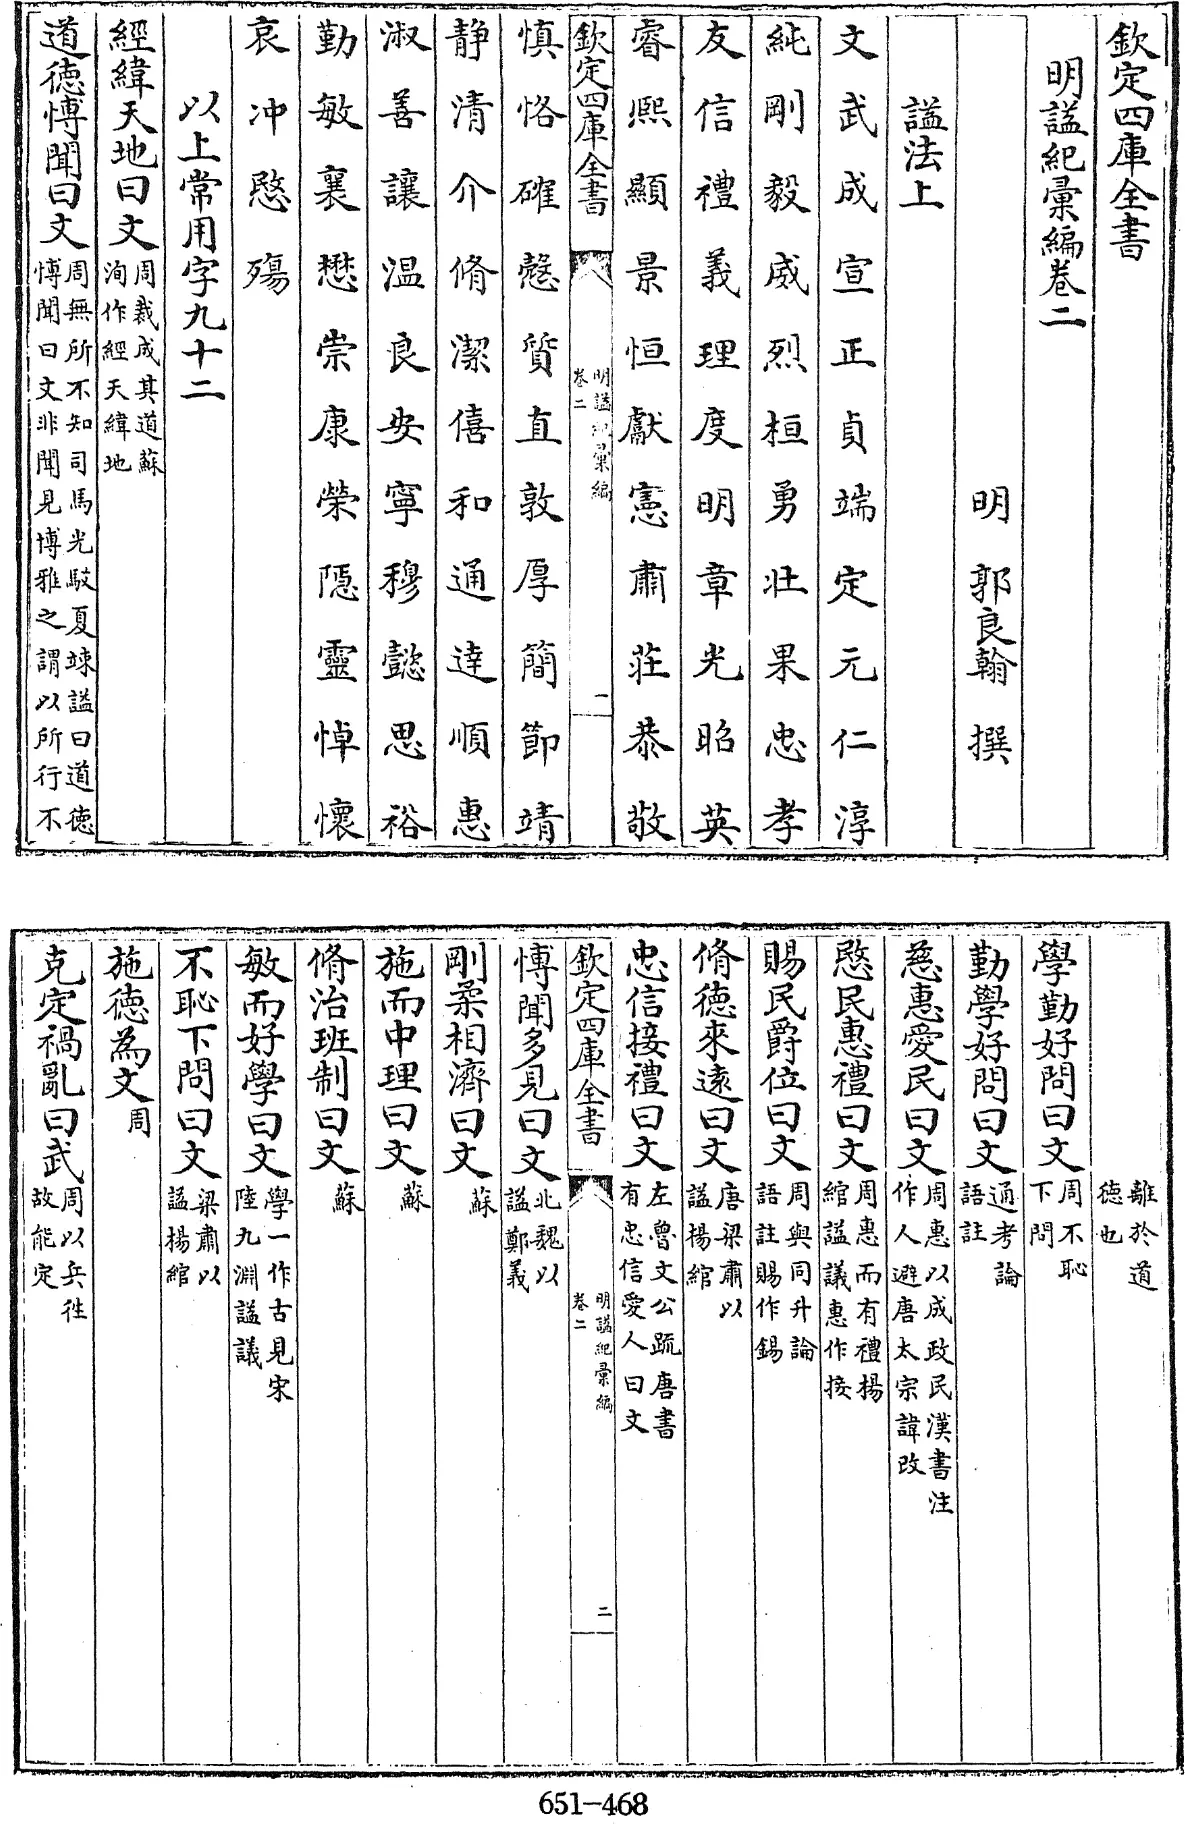 欽定四庫全書
明謚紀彙編卷二
明 郭良翰 撰
謚法上
文武成宣正貞端定元仁淳
純剛毅威烈桓勇壯果忠孝
友信禮義理度明章光昭英
睿熙顯景恒獻憲肅莊恭敬
欽定四庫全書
明謚紀彙編
卷二
一
慎恪確慤質直敦厚簡節靖
靜清介脩潔僖和通達順惠
淑善讓温良安寧穆懿思裕
勤敏襄懋崇康榮隱靈悼懷
哀冲愍殤
以上常用字九十二
經緯天地曰文周裁成其道蘇
洵作經天緯地
道德博聞曰文周無所不知司馬光駁夏竦謚曰道德
博聞曰文非聞見博雅之謂以所行不
離於道
德也
學勤好問曰文周不恥
下問
勤學好問曰文通考論
語註
慈惠愛民曰文周惠以成政民漢書注
作人避唐太宗諱改
愍民惠禮曰文周惠而有禮楊
綰謚議惠作接
賜民爵位曰文周與同升論
語註賜作錫
脩德來遠曰文唐梁肅以
謚楊綰
忠信接禮曰文左魯文公疏唐書
有忠信愛人曰文
欽定四庫全書
明謚紀彙編
卷二
二
博聞多見曰文北魏以
謚鄭羲
剛柔相濟曰文蘇
施而中理曰文蘇
脩治班制曰文蘇
敏而好學曰文學一作古見宋
陸九淵謚議
不恥下問曰文梁肅以
謚楊綰
施德為文周
克定禍亂曰武周以兵徃
故能定
651-468